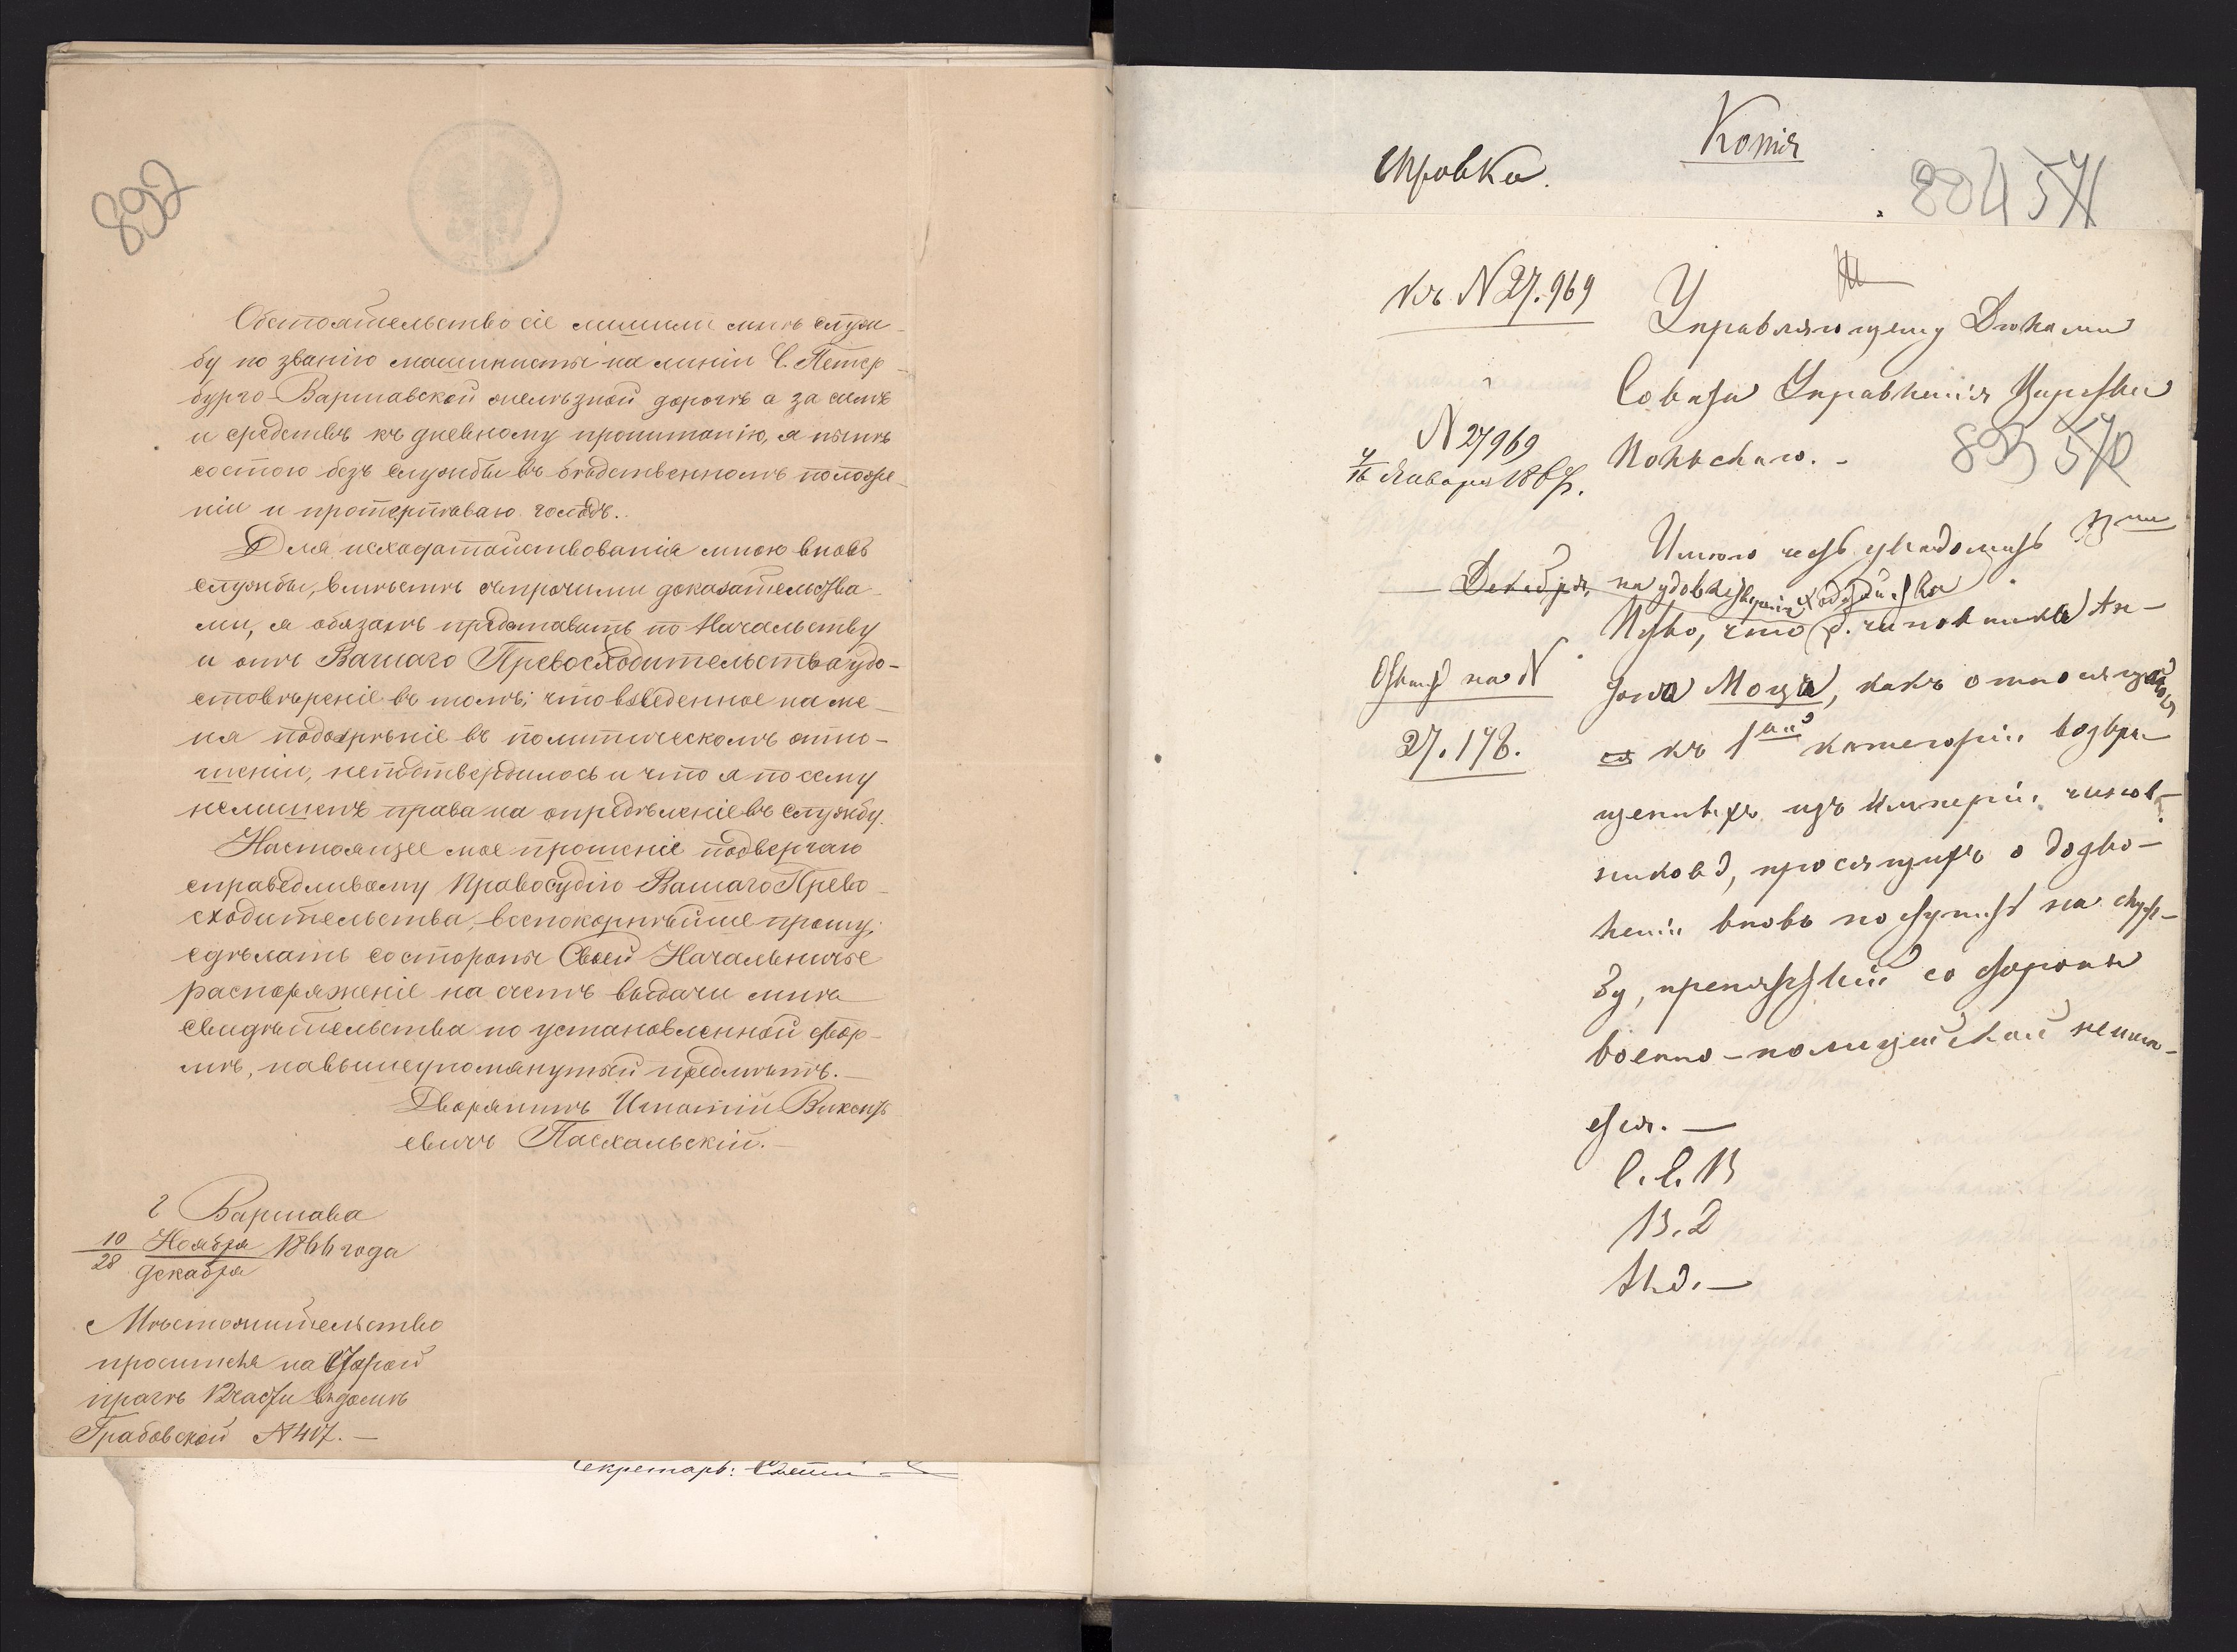 892
Обстоятельство сіе лишили мнѣ служ-
бу по званію машинисты на линіи С. Петер-
бурго-Варшавской желѣзной дорогѣ а за симъ
и средствъ къ дневному пропитанію, я нынѣ
состою безъ службы въ бѣдственномъ положе-
ніи и протерпѣваю голодъ.
Для исходатайствованія мною вновь
службы, вмѣстѣ съ прочими доказательства-
ми, я обязанъ представить по Начальству
и отъ Вашаго Превосходительства удо-
стовѣреніе въ томъ, что взведенное на ме-
ня подозрѣніе въ политическомъ отно-
шеніи, неподтвердилось и что я по сему
нелишенъ права на опредѣленіе въ службу.
Настоящее мое прошеніе подвергаю
справедливому Правосудію Вашаго Прево-
сходительства, всепокорнѣйше прошу,
сдѣлать со стороны Своей Начальничье
распоряженіе на счетъ выдачи мнѣ
свидѣтельства по установленной фор-
мѣ, на вышеупомянутый предметъ.—
Дворянинъ Игнатій Викент-
евичъ Пасхальскій.—
г Варшава
10/28 Ноября/Декабря 1866 года
Мѣстожительство
просителя на Старой
прагѣ 12 части въ домѣ
Грабовской №407.—
Секретарь:
Копія
справка.
804 571
къ №27.969
Управляющему Дѣлами
Совѣта Управленія Царства
Польскаго.—
893 570
№ 27969
4/16 Января 1867.
Имѣю честь увѣдомить
Декабря,
на удовлетвореніе ходатайства
что б. чиновника Ан-
тона Моца, какъ относящагося
ся къ 1ой категоріи возвра-
щенныхъ изъ Имперіи чинов-
никовъ, просящихъ о дозво-
леніи вновь поступить на служ-
бу, препятствій со стороны
военно-полицейской неимѣ-
ется.—
Отвѣтъ на №
27.178.
С. С. В
В. Д